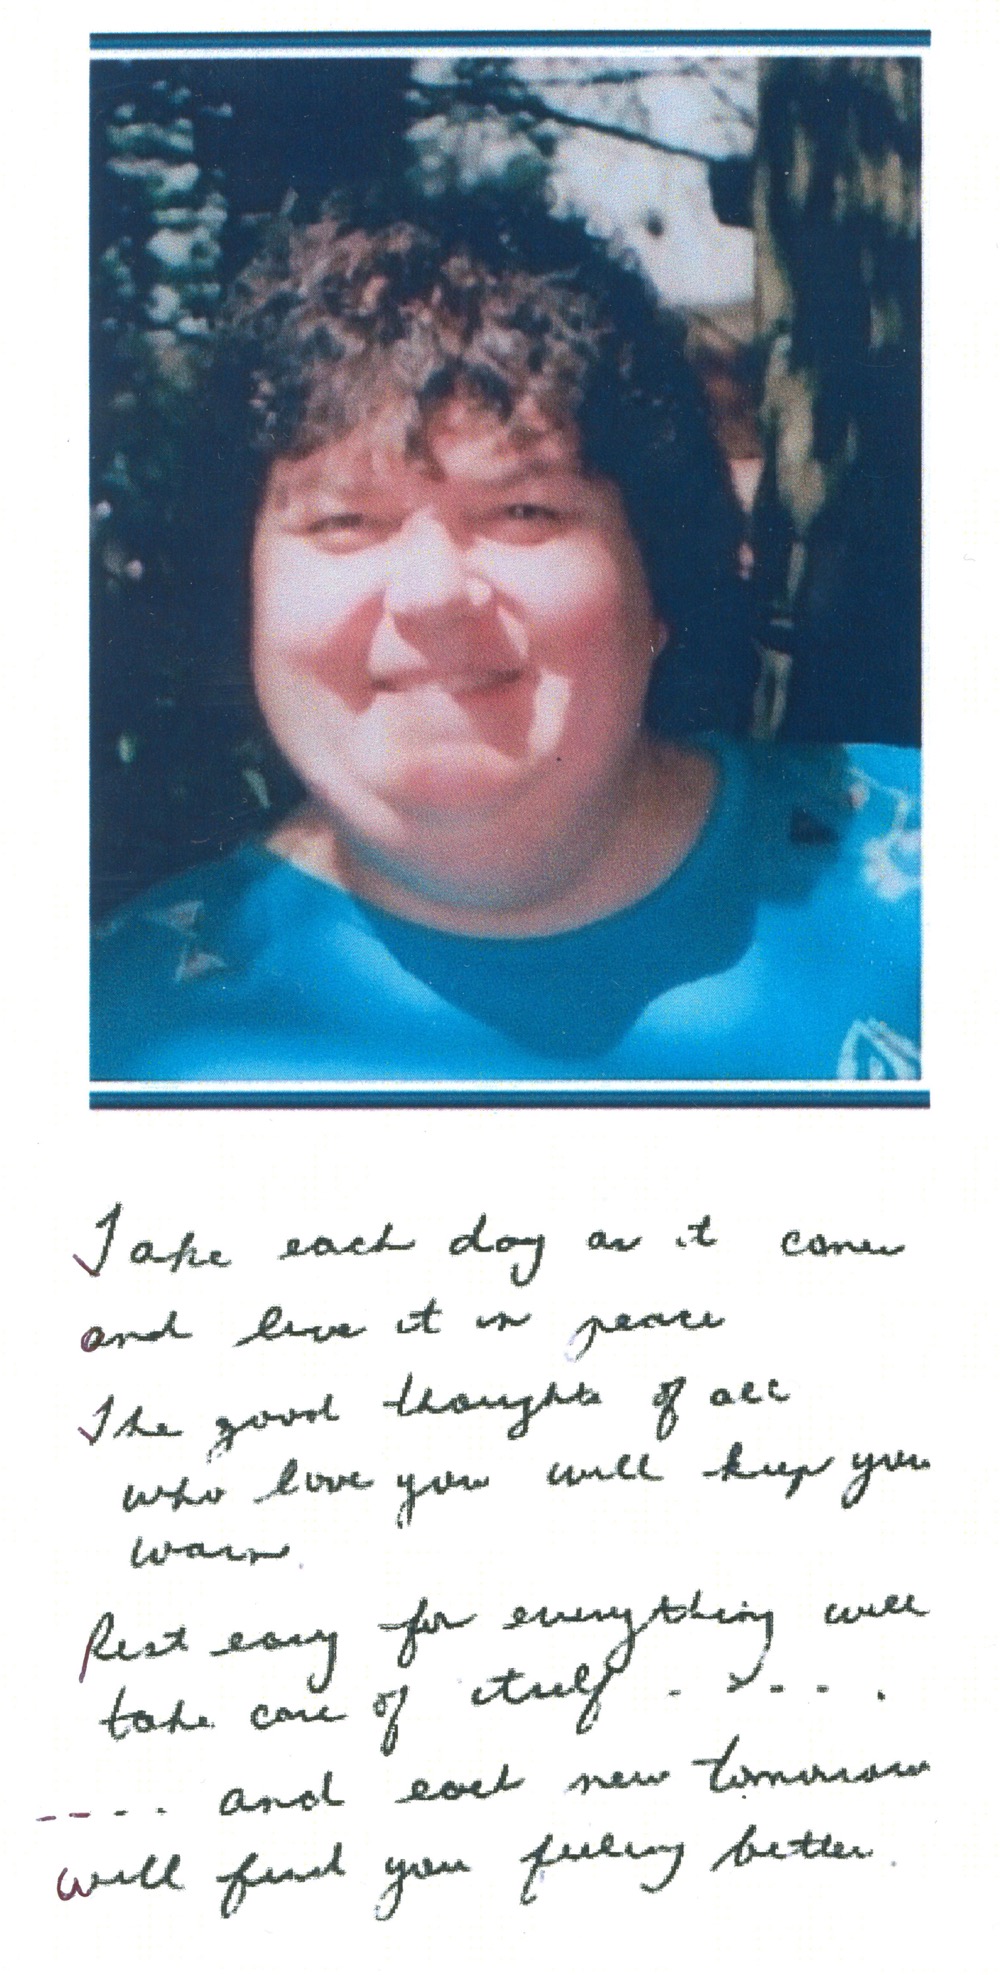 Take each day as it comes
and live it in peace
The good thoughts of all
who love you will keep you
warm.
Rest easy for everything will
take care of itself - - - - - .
- - - - and each new tomorrow
will find you feeling better.